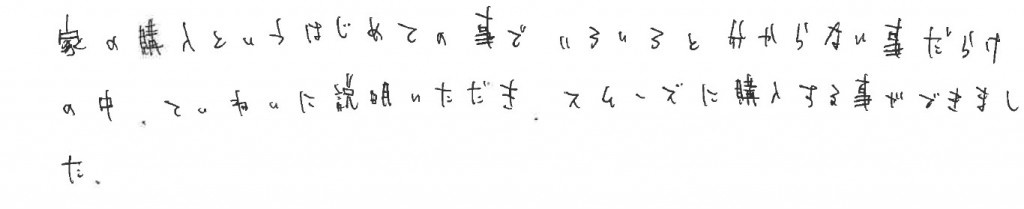 家の購入というはじめての事でいろいろと分からない事だらけ
の中、ていねいに説明いただき、スムーズに購入する事ができまし
た。